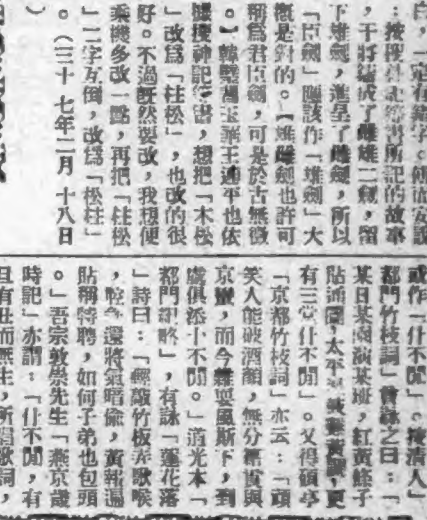 白,一定有錯字。
:按搜神記等書所記的故事
,干將鑄成了雌雄二劍,留
下雄劍,進呈了雌劍,所以
「臣劍」應該作「雄劍」大
概是對的。(雄雌劍也許可
稱爲君臣劍,可是於古無徵
。)韓璧 玉華王連平也依
據搜神記等書,想把「木松
」改爲「柱松」,也改的很
好。不過既然要改,我想便
乘機多改一點,再把「柱松
」二字互倒,改爲「松柱」
。(三十七年二月十八日
)
或作「什不閒」。按清人「
都門竹枝詞」曾詠之曰:「
某日某園演某班,紅黃條子
貼通圜,太平 更
有三堂什不閒」。又得碩亭
「京都竹枝詞」亦云:「頑
笑人能破酒顏,無分籍貫與
京蠻,而今雜耍風斯下,到
處俱添十不閒。」道光本「
都門記略」,有詠「蓮花落
」詩曰:「輕敲竹板弄歌喉
,腔急還將氣暗偷,黃報遍
貼稱特聘,如何子弟也包頭
。」吾宗敦崇先生「燕京歲
時記」亦謂:「什不閒,有
且有丑而無生,所唱歌詞,